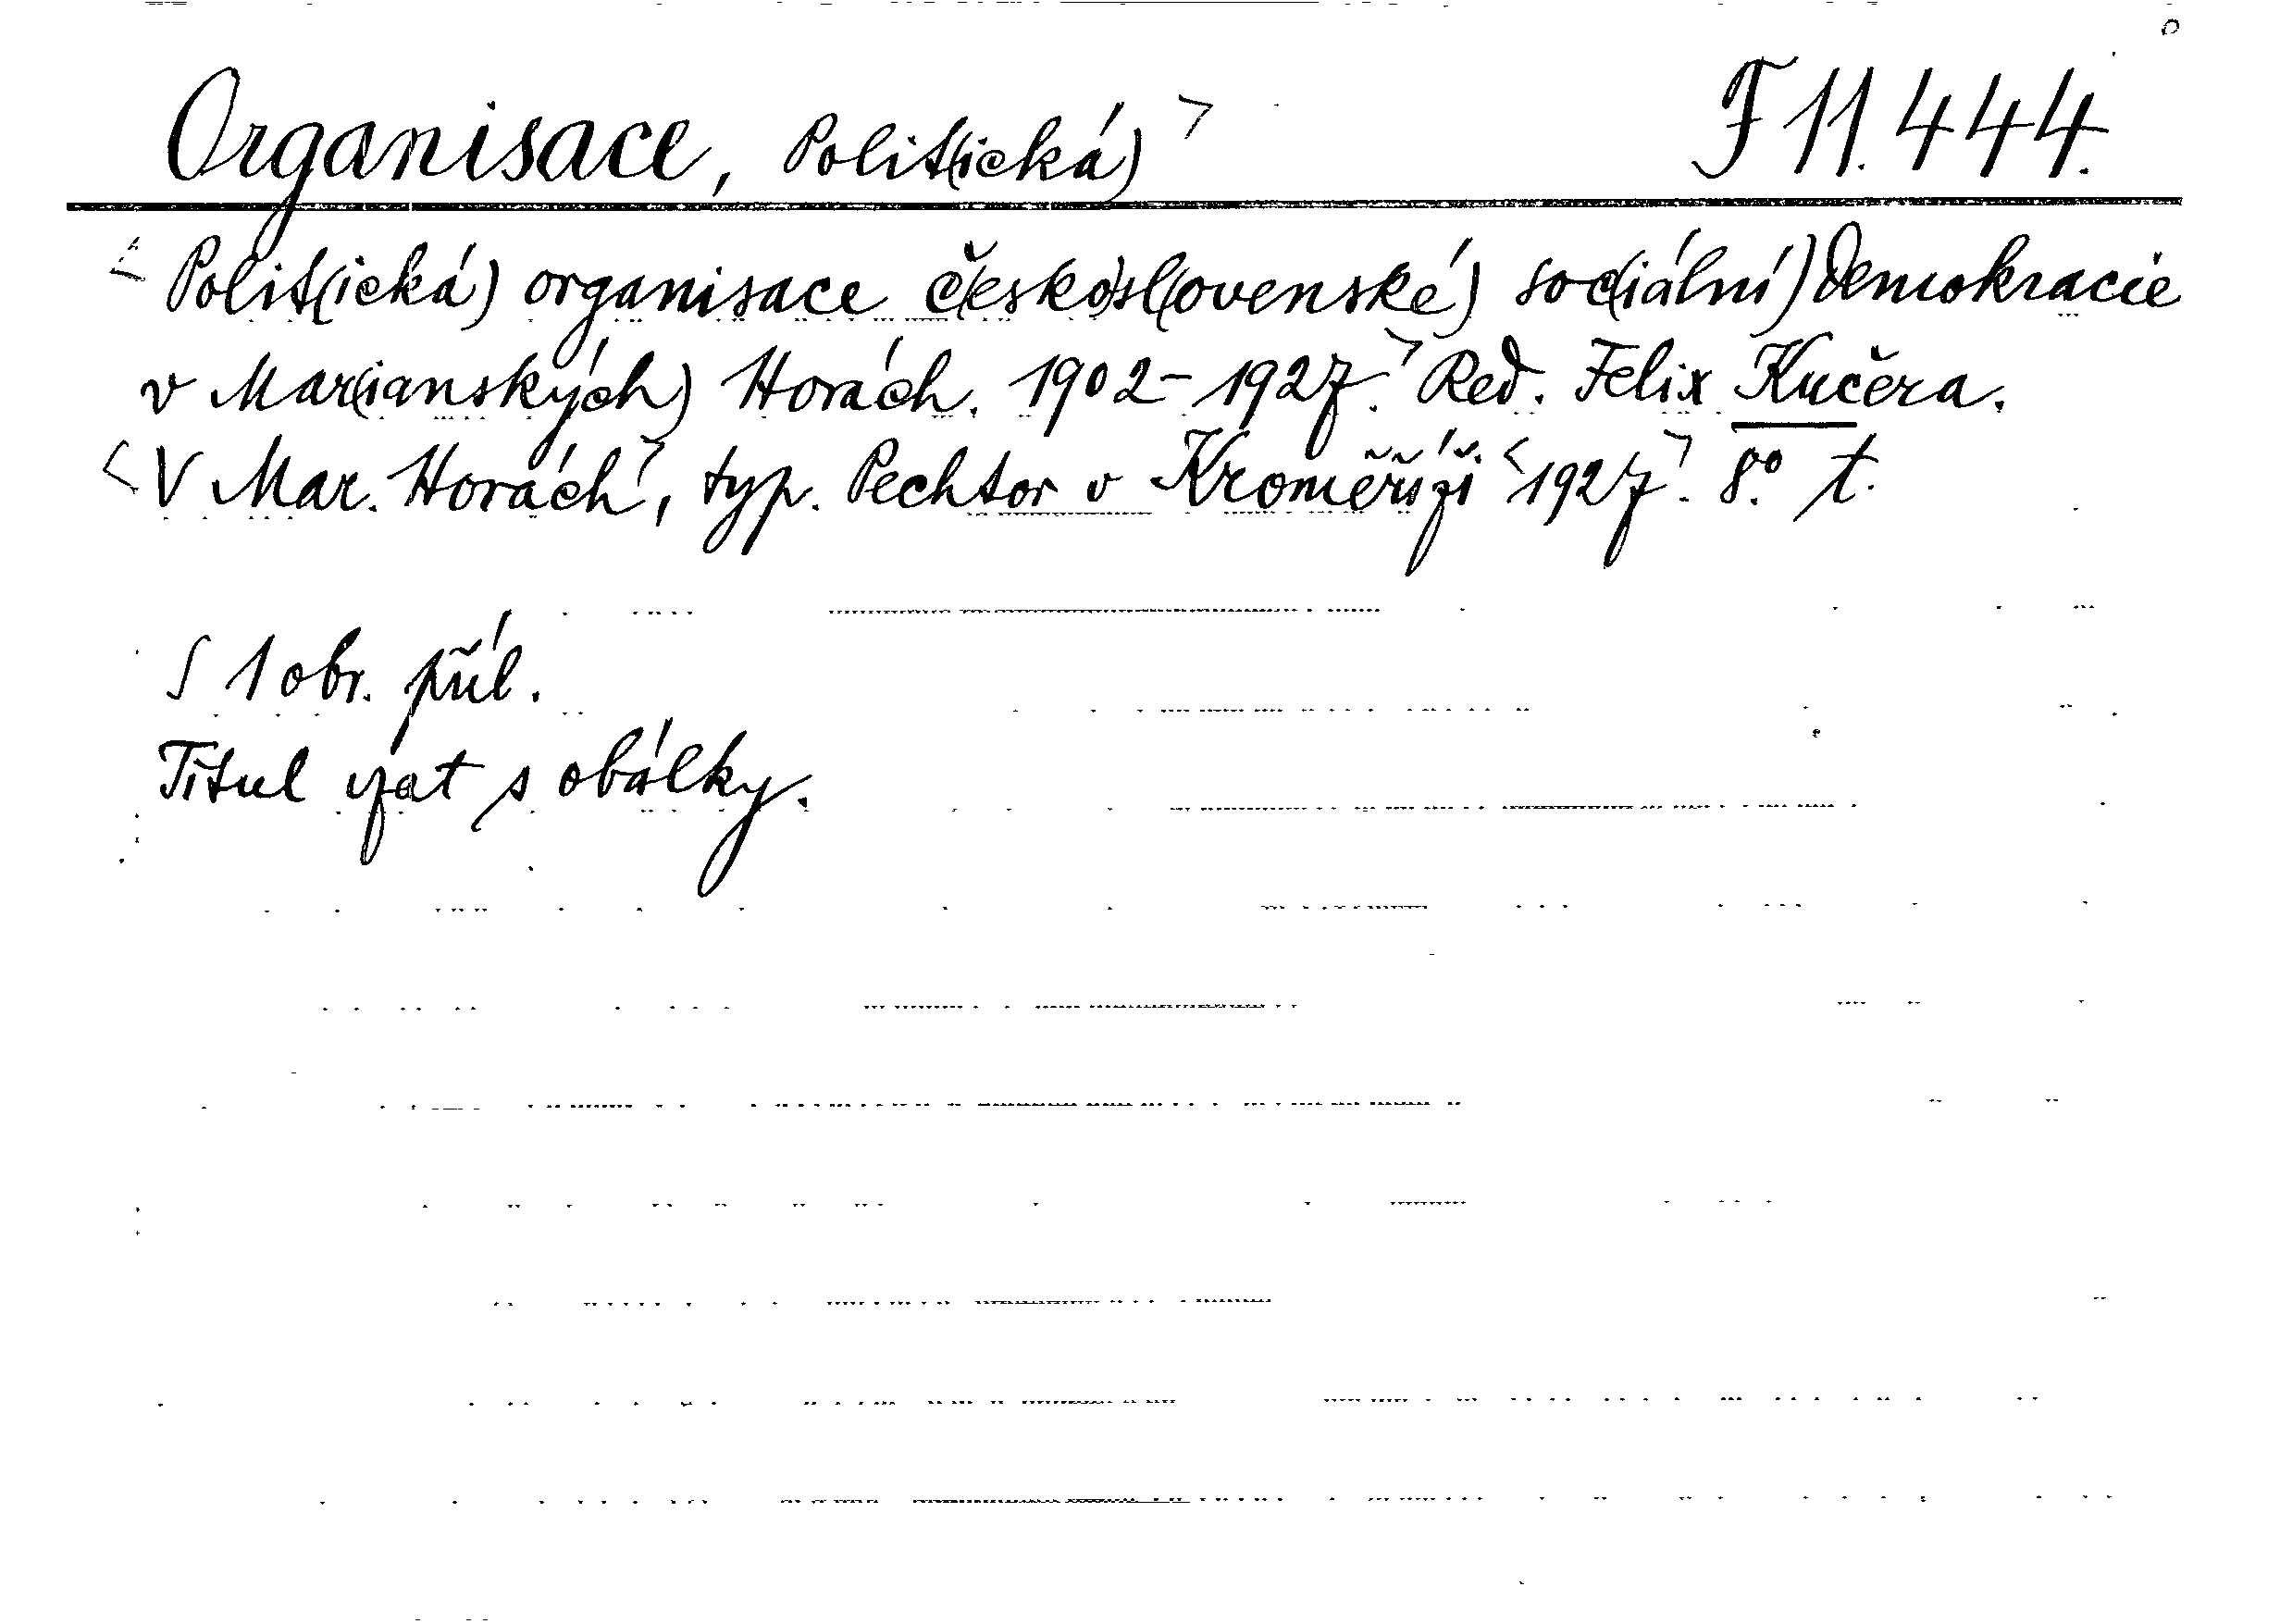 Organisace, Polit(ická)> F 11.444.
<Polit(ická) organisace č(esko)sl(ovenské) soc(iální) demokracie
v Mar(ianských) Horách. 1902-1927.> Red. Felix Kučera.
<V Mar. Horách>, typ. Pechtor v Kroměříži <1927>. 8.° t.
S 1 obr. příl.
Titul vzat s obálky.